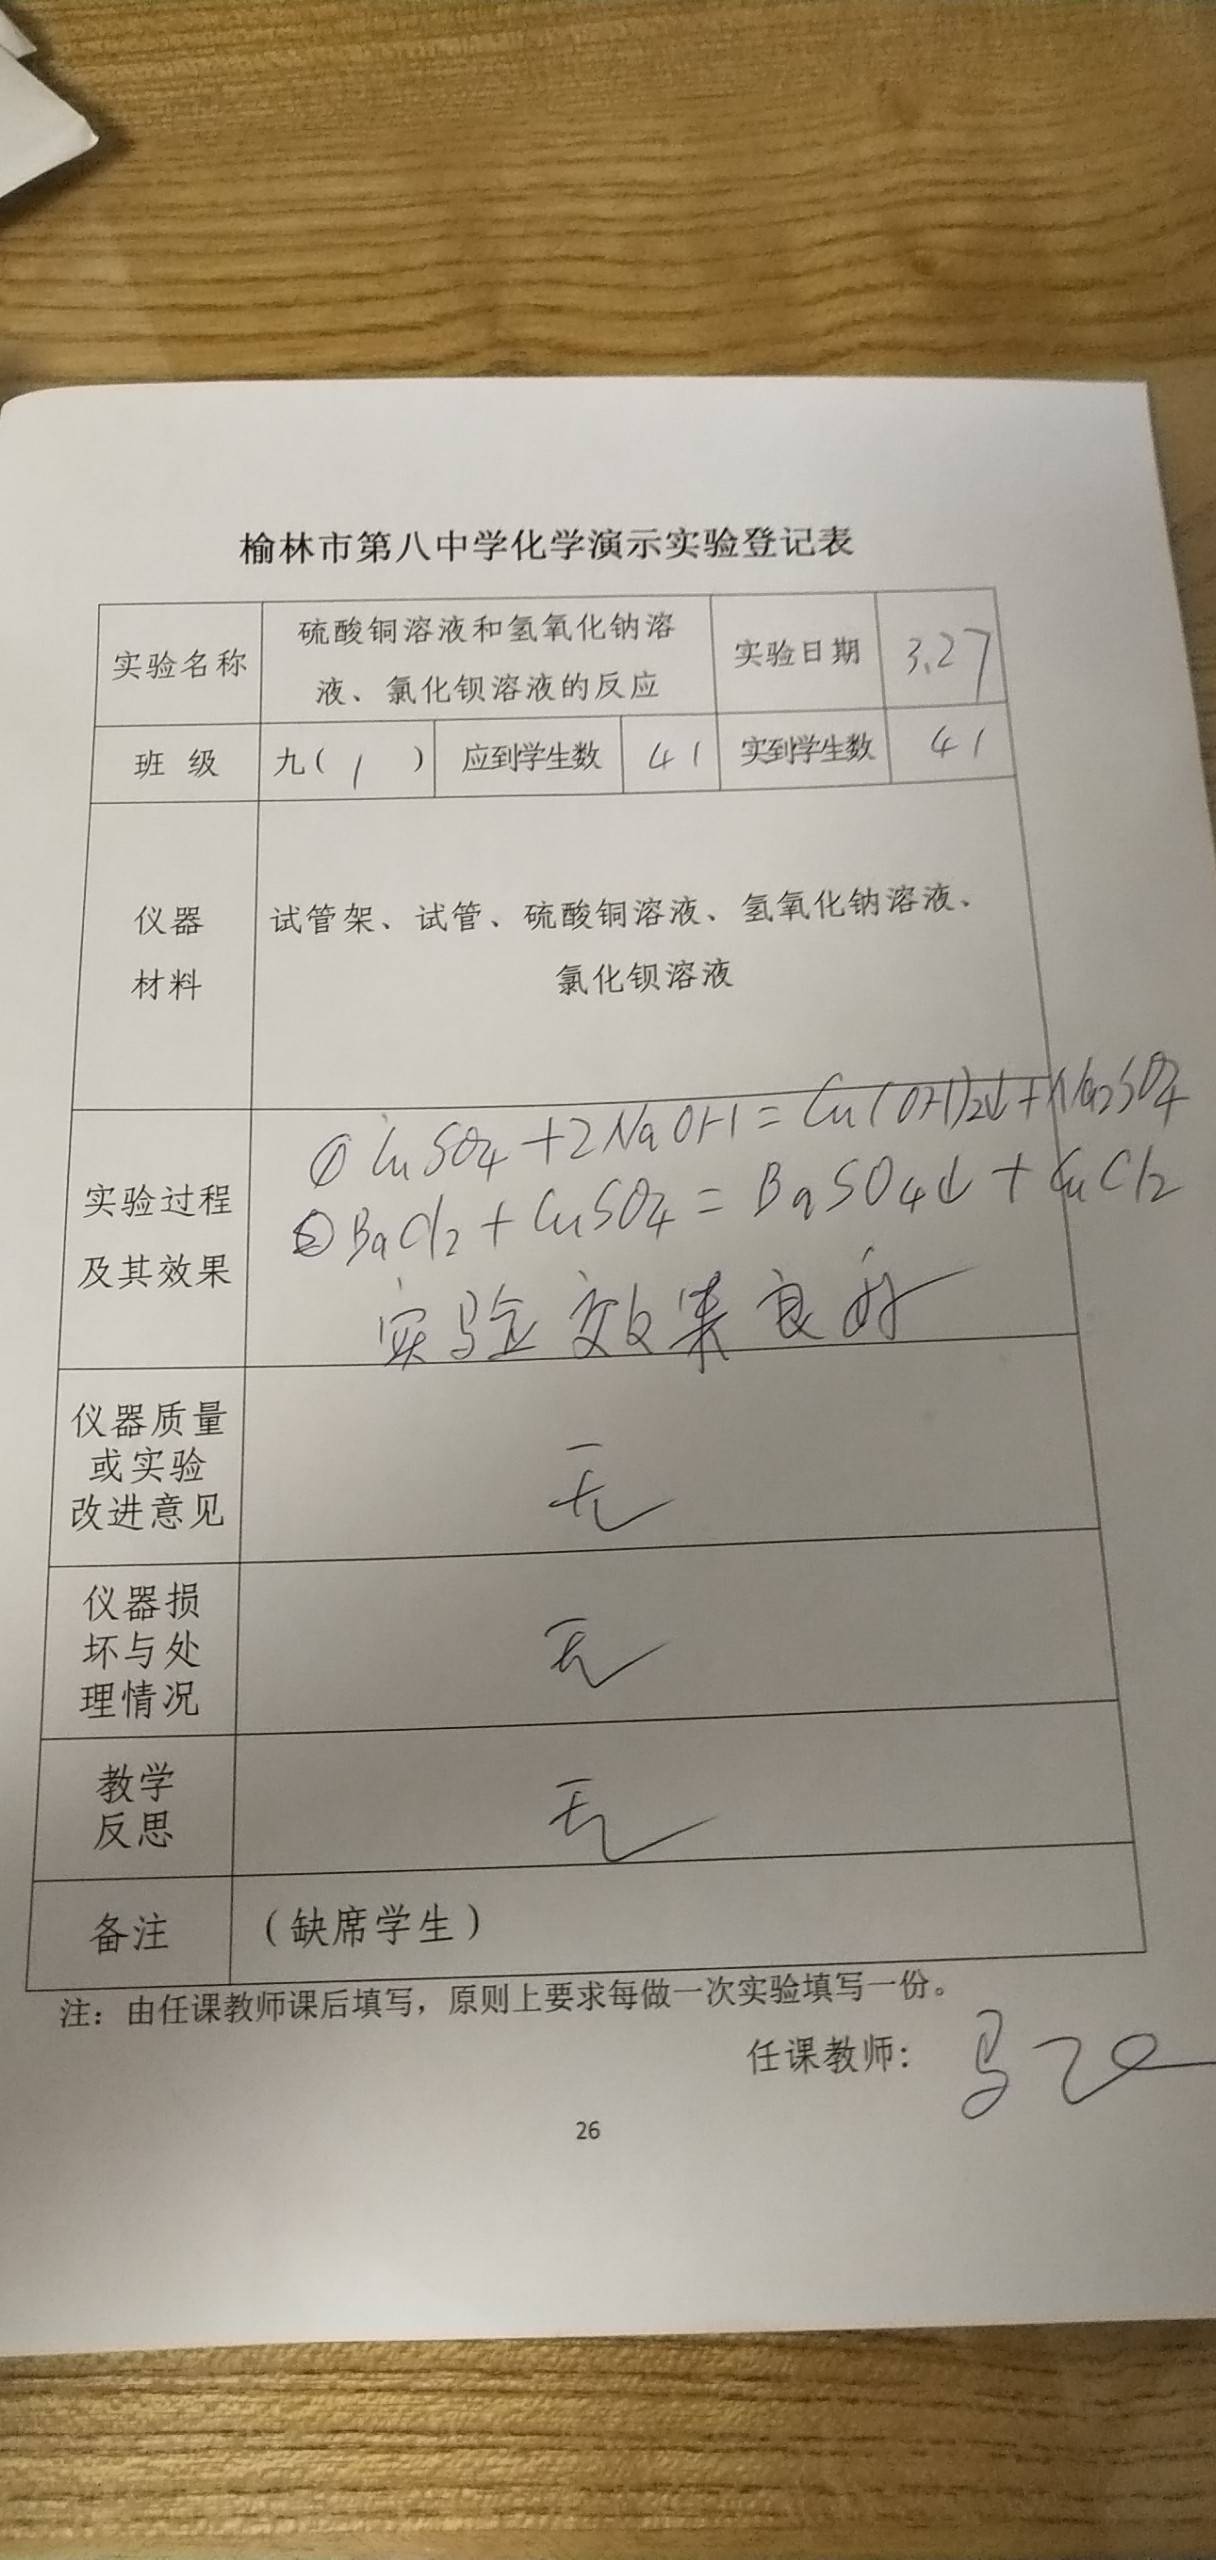 榆林市第八中学化学演示实验登记表
实验名称
硫酸铜溶液和氢氧化钠溶
液、氯化钡溶液的反应
实验日期
3.27
班 级
九( 1 )
应到学生数
41
实到学生数
41
仪器
材料
试管架、试管、硫酸铜溶液、氢氧化钠溶液、
氯化钡溶液
实验过程
及其效果
①CuSO4+2NaOH=Cu(OH)2↓+Na2SO4
②BaCl2+CuSO4=BaSO4↓+CuCl2
实验效果良好
仪器质量
或实验
改进意见
无
仪器损
坏与处
理情况
无
教学
反思
无
备注
(缺席学生)
注：由任课教师课后填写，原则上要求每做一次实验填写一份。
任课教师：
26